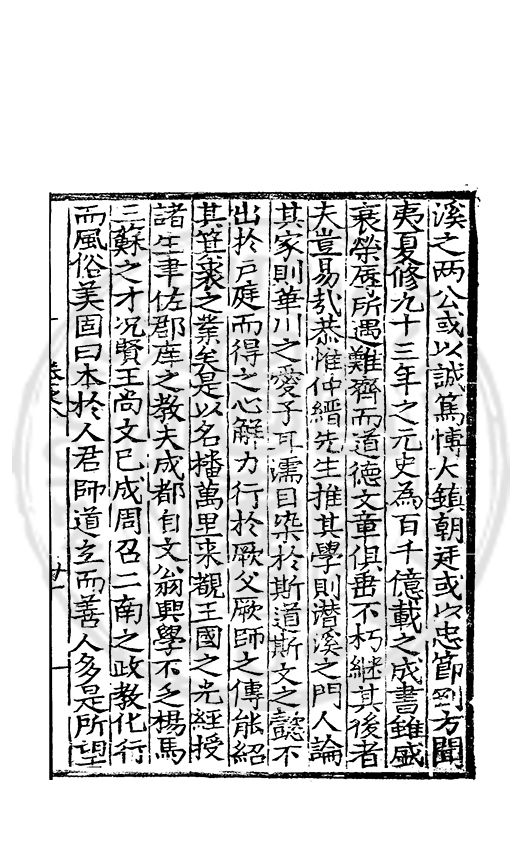 溪之两公或以誠篤慱大鎮朝廷或以忠節烈方聞
夷夏修九十三年之元史為百千億載之成書雖盛
衰榮辱所遇難齊而道德文章俱垂不朽継其後者
夫豈易㢤恭惟仲縉先生推其學則潜溪之門人論
其家則華川之愛子耳濡目染於斯道斯文之懿不
出於戸庭而得之心解力行於厥父厥師之傳能紹
其箕裘之業矣是以名播萬里来覩王國之光經授
諸生聿佐郡庠之教夫成都自文翁興學不乏楊馬
三蘇之才况賢王尚文已成周召二南之政教化行
而風俗美固曰本於人君師道立而善人多是所望
卷之八
廿一